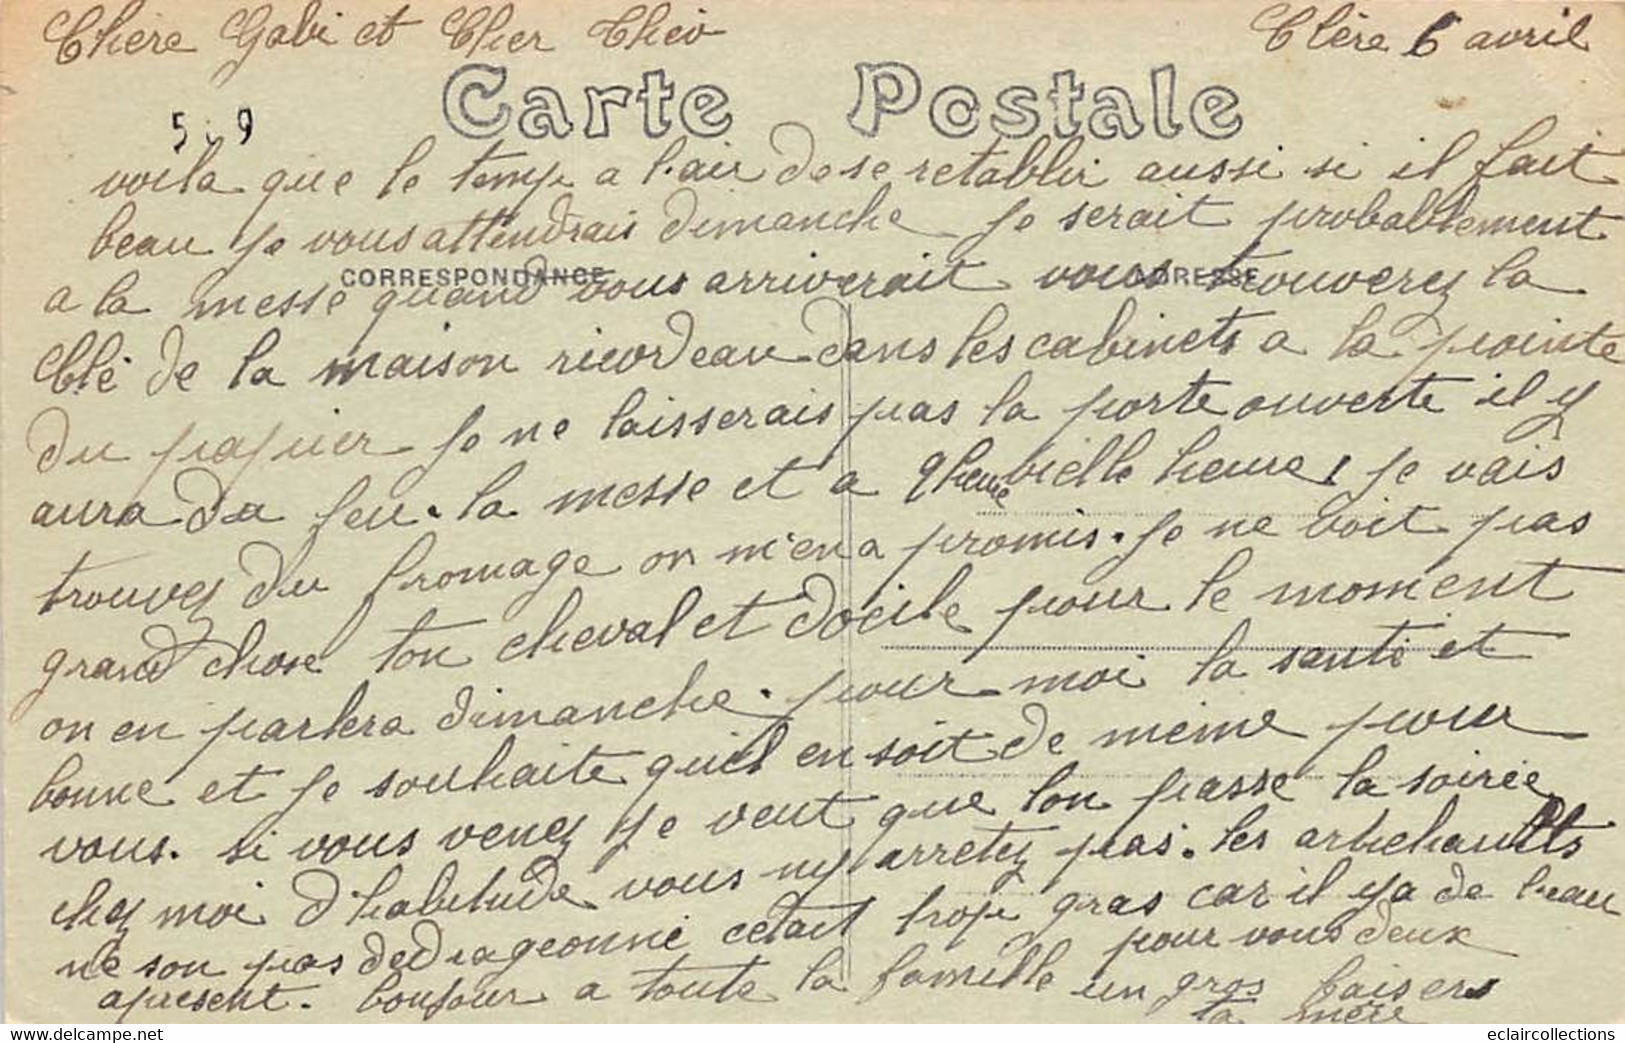 Chère Gabi et Cher Théo Clère 6 avril
Carte Postale
5 9
voila que le temp a l'air de se retablir aussi si il fait
beau je vous attendrais dimanche je serait probablement
CORRESPONDANCE ADRESSE
a la messe quand vous arriverait vous trouverez la
Clé de la maison ricordeau dans les cabinets a la pointe
du papier je ne laisserais pas la porte ouverte il y
aura du feu. la messe et a 9 heure vielle heure, je vais
trouvez du fromage on m'en a promis. je ne voit pas
grand chose ton cheval et docile pour le moment
on en parlera dimanche. pour moi la santé et
bonne et je souhaite quil en soit de même pour
vous. si vous venez je veut que lon passe la soirée
chez moi d'habitude vous ny arretez pas. les artichauts
ne son pas dedrageonné cetait trop gras car il ya de beau
apresent. bonjour a toute la famille pour vous deux
un gros baisers
ta mère
eclaircollections
www.delcampe.net